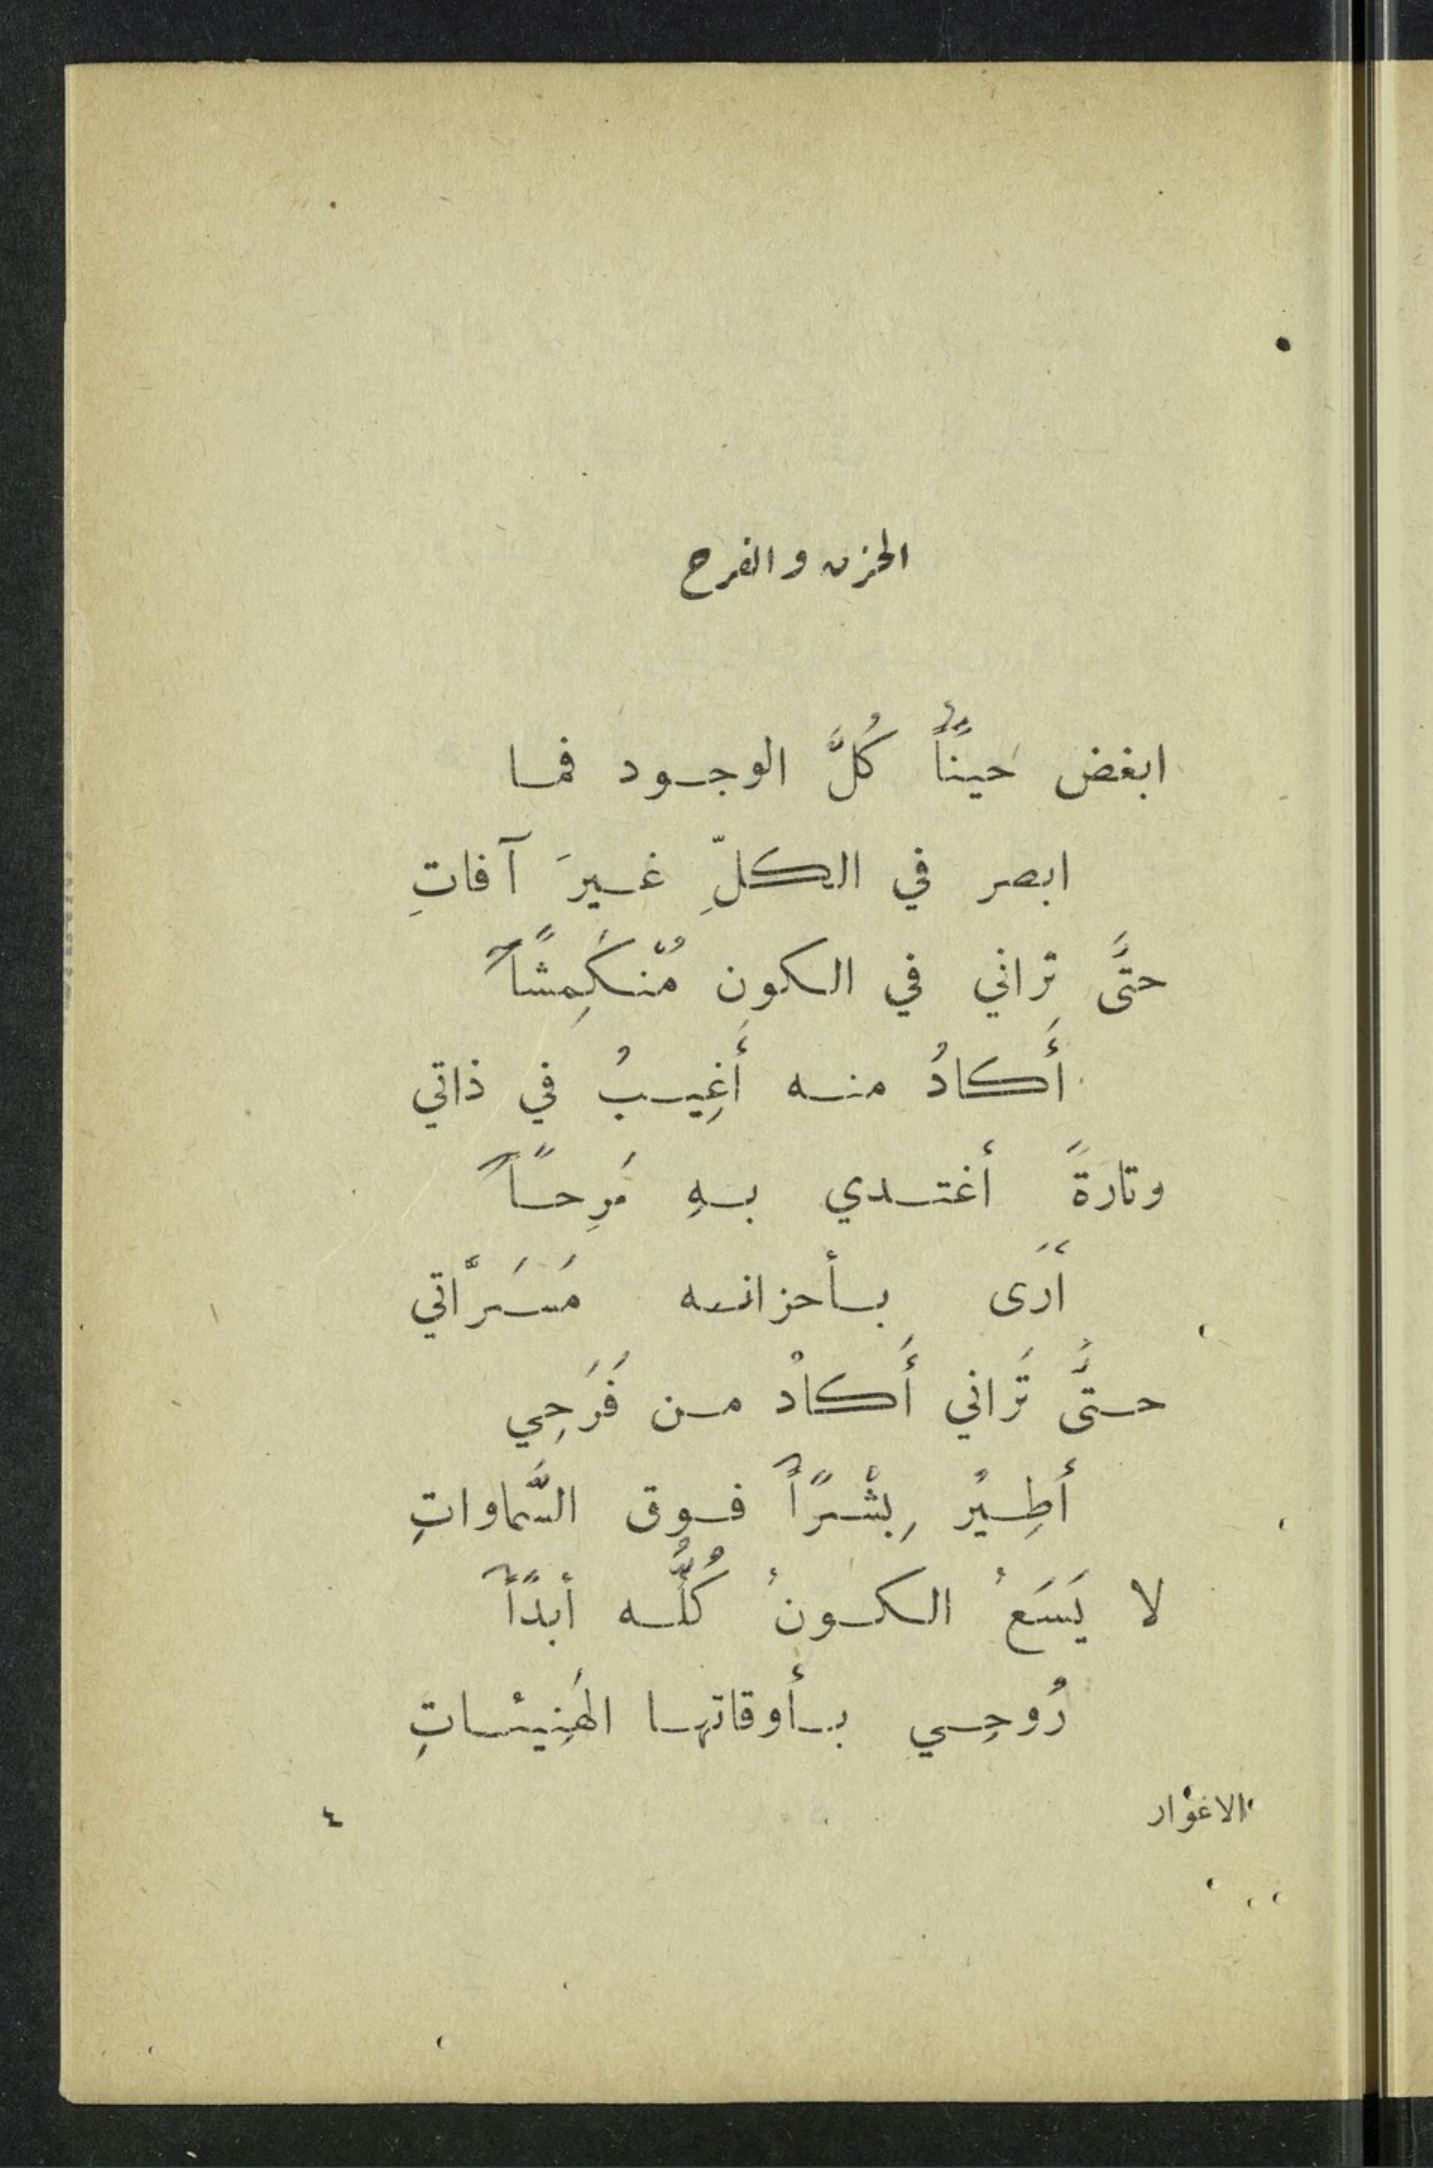 الحزن والفرح
ابغض حيناً كُلَّ الوجود فما
ابصر في الكلِّ غيرَ آفاتِ
حتَّى تراني في الكونِ مُنْكَمِشًا
أَكادُ منه أَغِيبُ في ذاتي
وتارةً أغتدي بهِ مَرِحًا
أَرَى بأحزانه مَسَرَّاتي
حتَّى تَراني أَكادُ من فَرَحِي
أَطِيْرُ بِشْرًا فوق السَّماواتِ
لا يَسَعُ الكونُ كُلُّه أبدًا
رُوحِي بأوقاتها الهَنِيئاتِ
الاغوار ٤